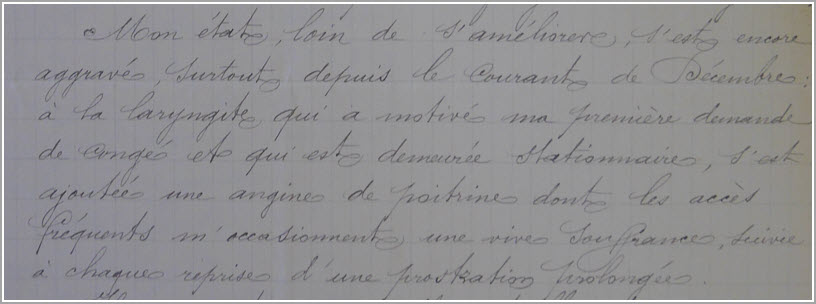 Mon état, loin de s'améliorer, s'est encore
aggravé, surtout depuis le courant de Décembre :
à la laryngite qui a motivé ma première demande
de congé et qui est demeurée stationnaire, s'est
ajoutée une angine de poitrine dont les accès
fréquents m'occasionnent une vive souffrance, suivie
à chaque reprise d'une prostration prolongée.